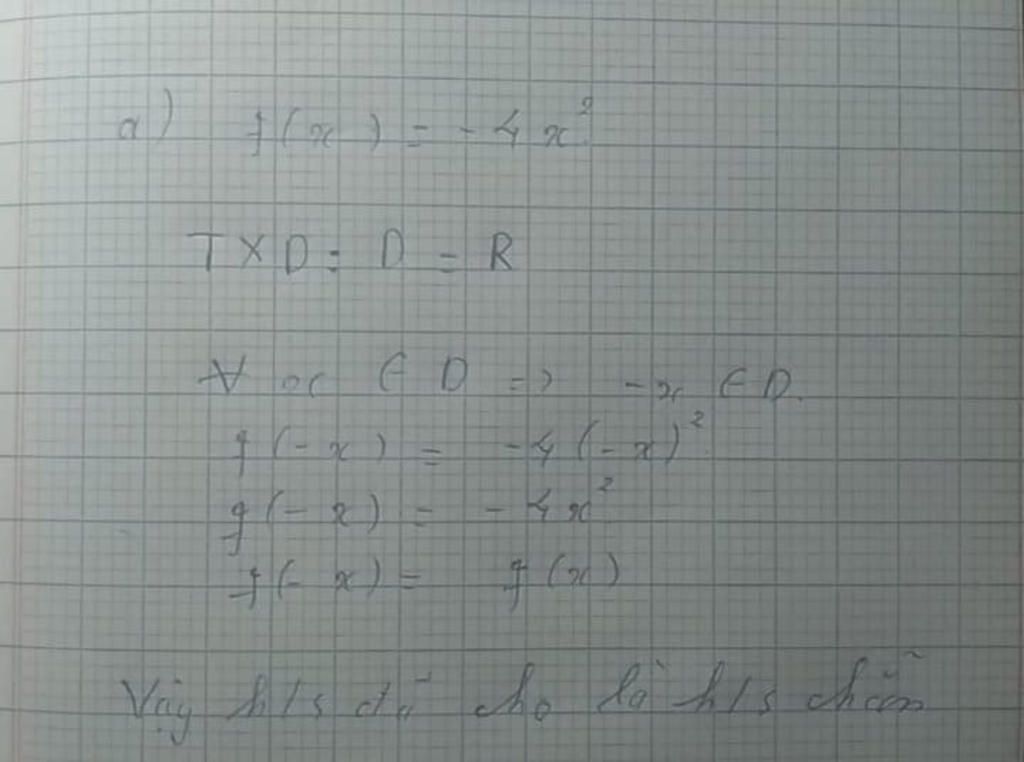 a) f(x) = -4x²
TXD: D = R
∀ x ∈ D => -x ∈ D.
f(-x) = -4(-x)²
f(-x) = -4x²
f(-x) = f(x)
Vậy h/s đã cho là h/s chẵn